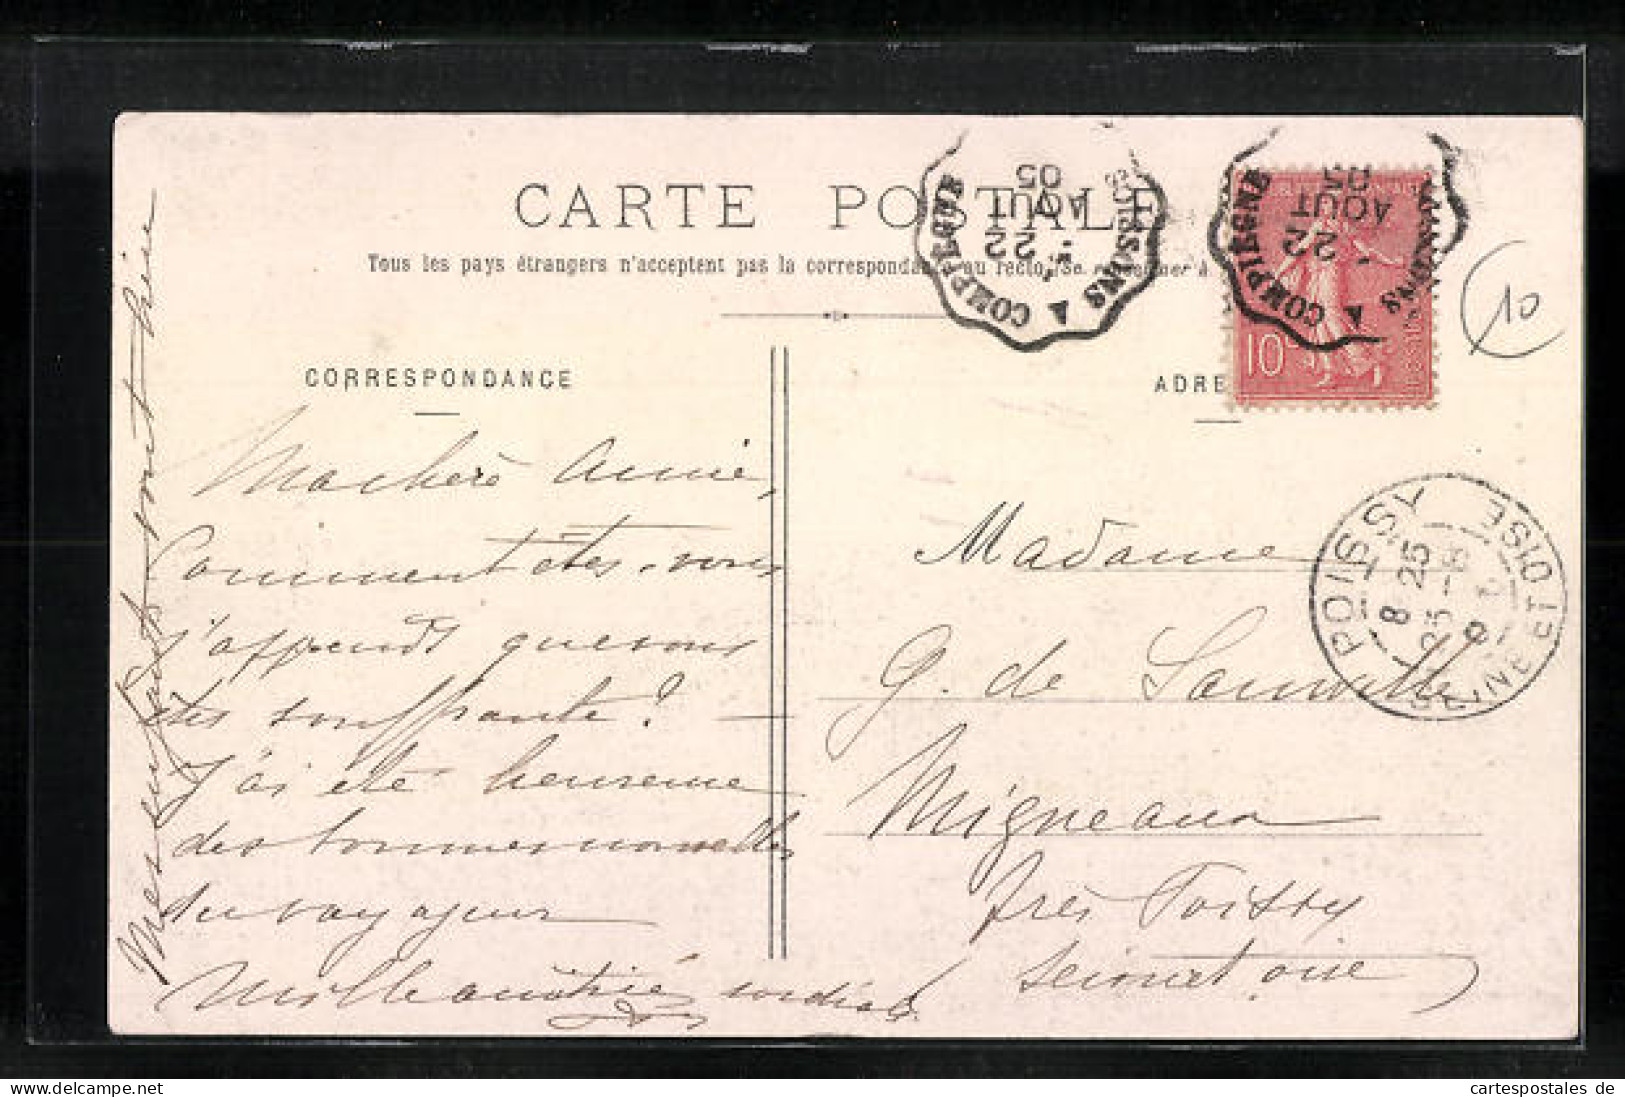 CARTE POSTALE
Tous les pays étrangers n'acceptent pas la correspondance au recto, (Se renseigner à
CORRESPONDANCE
ADRE
Machère Amie,
Comment êtes-vous
j'apprends que vous
êtes souffrante? —
J'ai été heureuse
des bonnes nouvelles
du voyageur
Mille amitiés cordiales
Mes enfants vont bien
Madame
G. de
Migneaux
près Poissy
Seine et Oise
COMPIÈGNE A SOISSONS
22
AOUT
05
COMPIÈGNE A SOISSONS
22
AOUT
05
10
10
POISSY
8 25
25 - 8
05
SEINE ET OISE
Ansichtskarten-center
cartespostales de